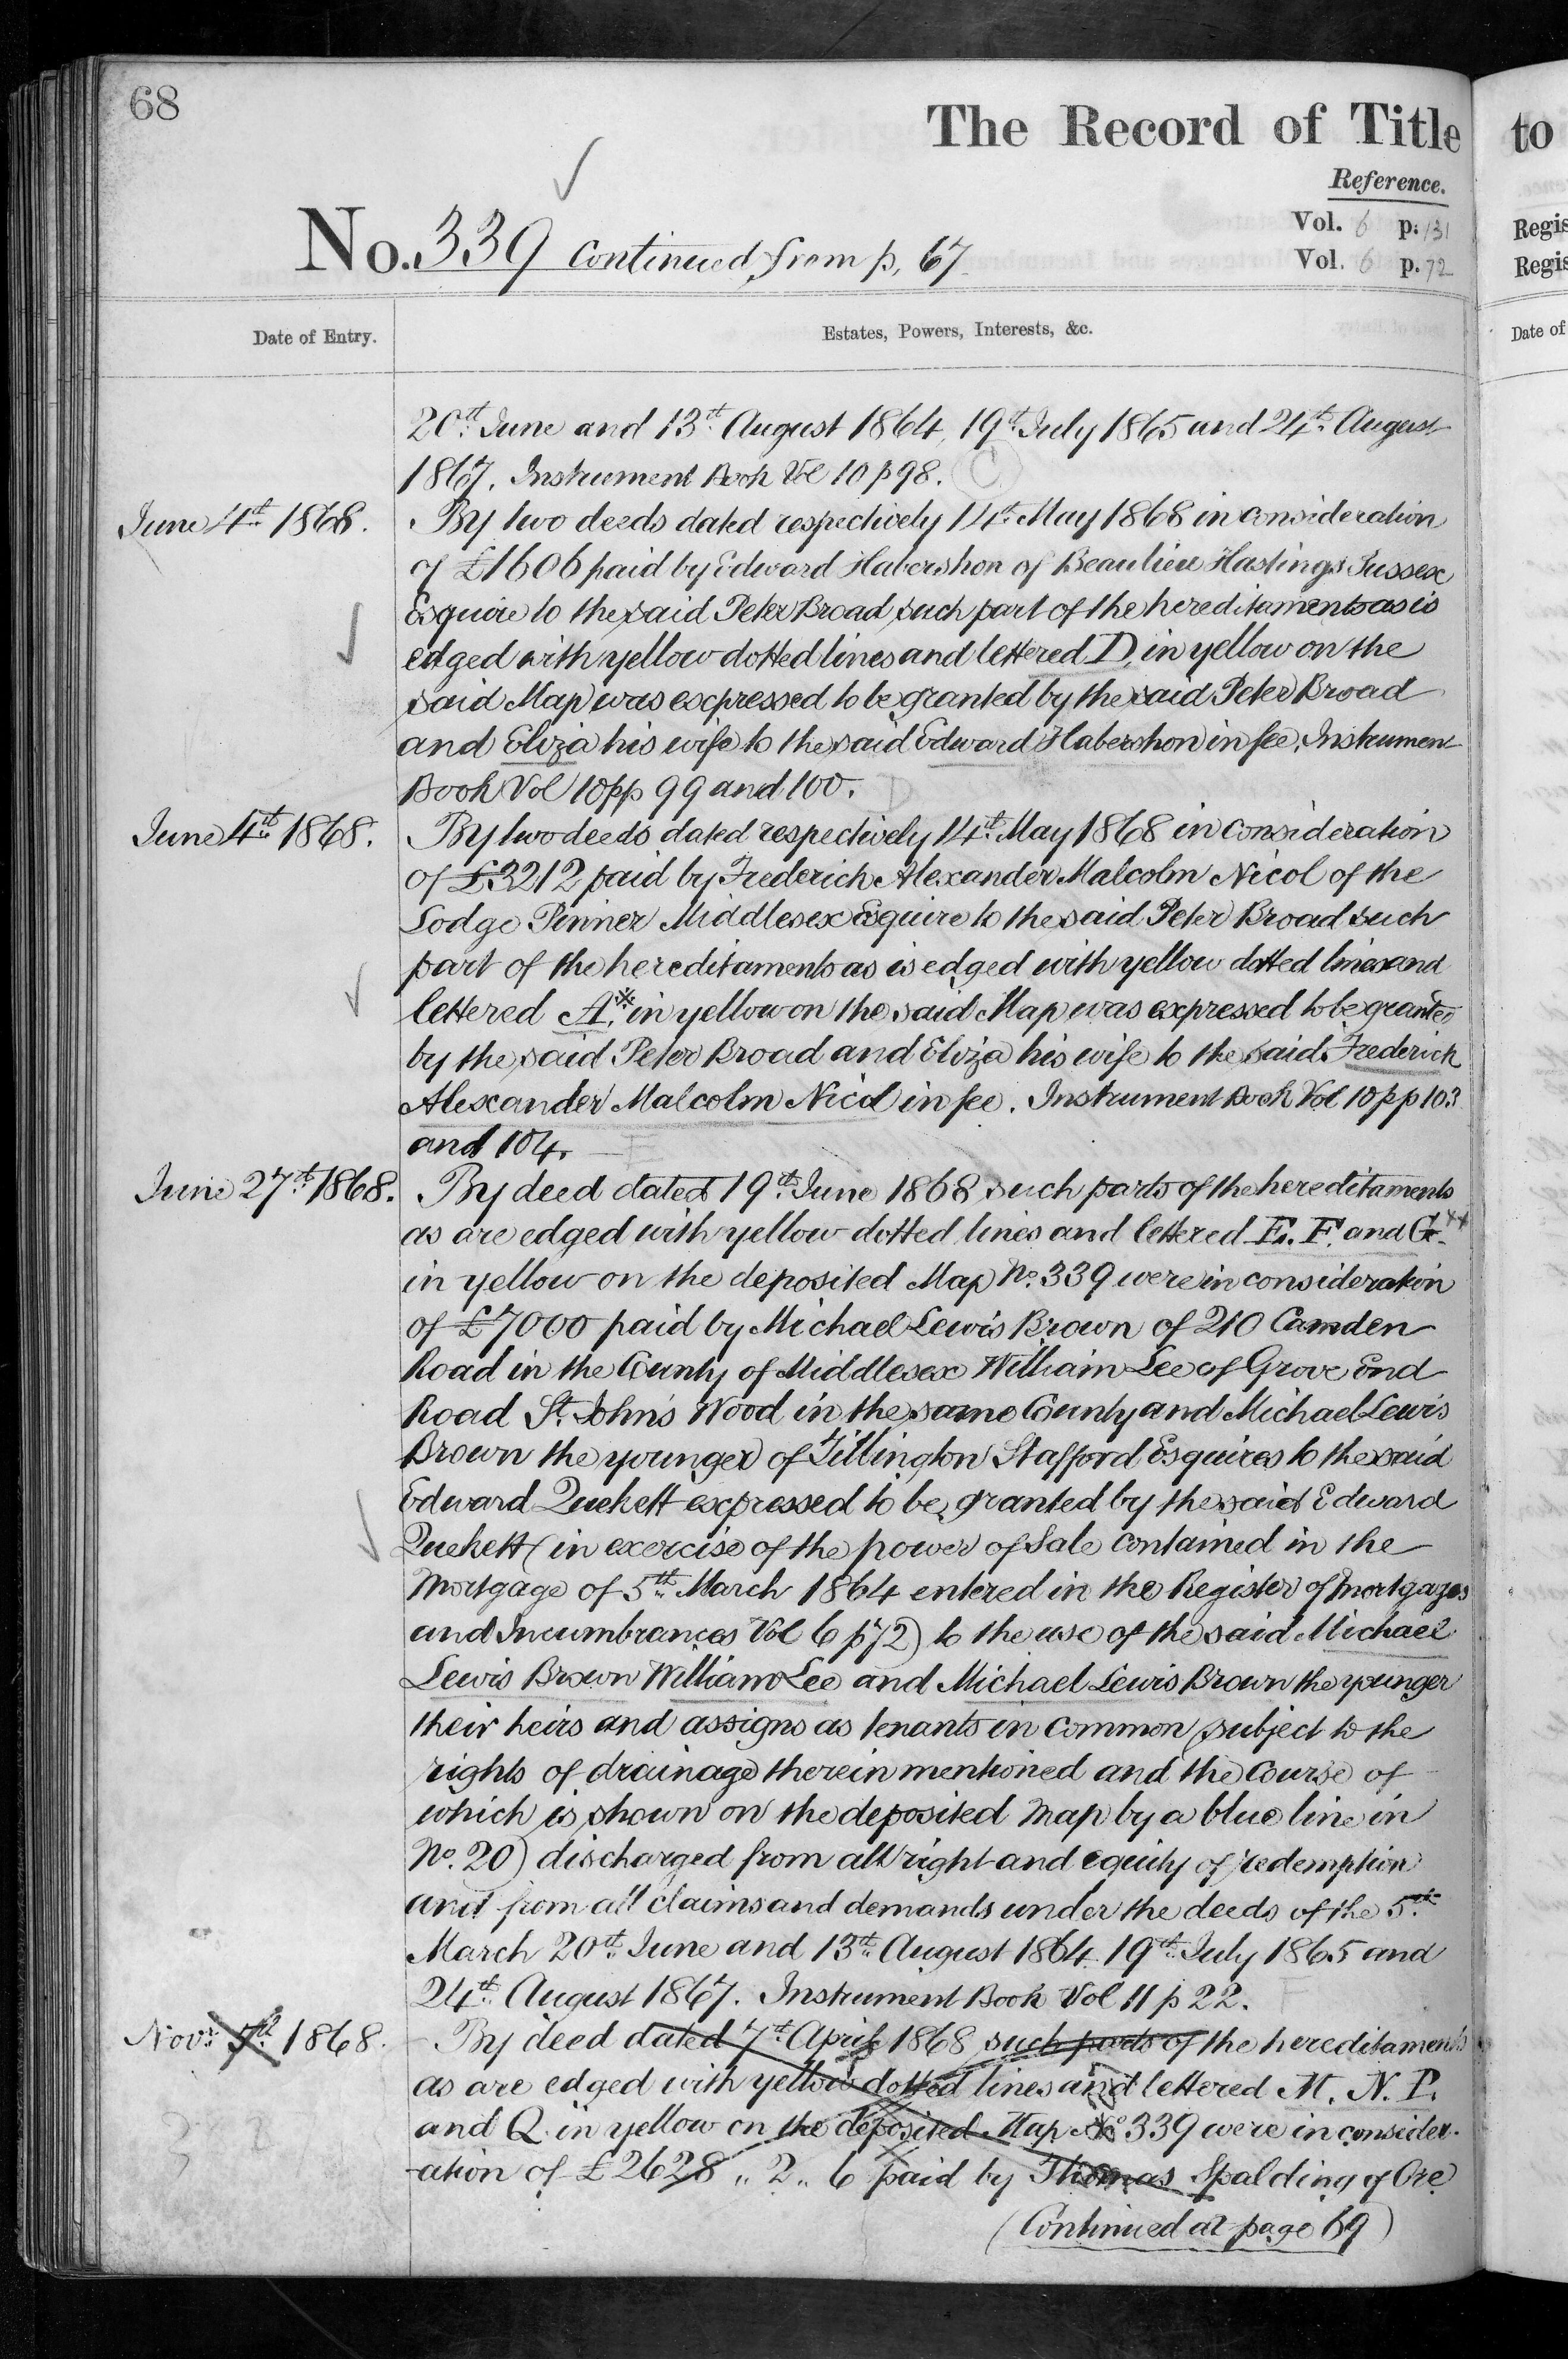 68
The Record of Title
Reference.
No. 339 continued from p. 67
Vol. 6 p. 131
Vol. 6 p. 72
Date of Entry.
Estates, Powers, Interests, &c.
20th June and 13th August 1864, 19th July 1865 and 24th August
1867. Instrument Book Vol 10 p 98. C
June 4th 1868.
By two deeds dated respectively 14th May 1868 in consideration
of £1606 paid by Edward Habershon of Beaulieu Hastings Sussex
Esquire to the said Peter Broad such part of the hereditaments as is
edged with yellow dotted lines and lettered D, in yellow on the
said Map was expressed to be granted by the said Peter Broad
and Eliza his wife to the said Edward Habershon in fee. Instrument
Book Vol 10 pp 99 and 100. D
June 4th 1868.
By two deeds dated respectively 14th May 1868 in consideration
of £3212 paid by Frederick Alexander Malcolm Nicol of the
Lodge Pinner Middlesex Esquire to the said Peter Broad such
part of the hereditaments as is edged with yellow dotted lines and
lettered A.* in yellow on the said Map was expressed to be granted
by the said Peter Broad and Eliza his wife to the said Frederick
Alexander Malcolm Nicol in fee. Instrument Book Vol 10 pp 103
and 104. E
June 27th 1868.
By deed dated 19th June 1868 such parts of the hereditaments
as are edged with yellow dotted lines and lettered E. F. and G.
in yellow on the deposited Map No. 339 were in consideration
of £7000 paid by Michael Lewis Brown of 210 Camden
Road in the County of Middlesex William Lee of Grove End
Road St. John's Wood in the same County and Michael Lewis
Brown the younger of Tillington Stafford Esquires to the said
Edward Quekett expressed to be granted by the said Edward
Quekett (in exercise of the power of Sale contained in the
Mortgage of 5th March 1864 entered in the Register of Mortgages
and Incumbrances Vol 6 p 72) to the use of the said Michael
Lewis Brown William Lee and Michael Lewis Brown the younger
their heirs and assigns as tenants in common (subject to the
rights of drainage therein mentioned and the course of
which is shown on the deposited Map by a blue line in
No. 20) discharged from all right and equity of redemption
and from all claims and demands under the deeds of the 5th
March 20th June and 13th August 1864. 19th July 1865 and
24th August 1867. Instrument Book Vol 11 p 22. F
Novr. 5th 1868.
By deed dated 7th April 1868 such parts of the hereditaments
as are edged with yellow dotted lines and lettered M. N. P.
and Q in yellow on the deposited Map No 339 were in consider-
-ation of £2628 „ 2 „ 6 paid by Thomas Spalding of Ore
(Continued at page 69)
to
Regis
Regis
Date of